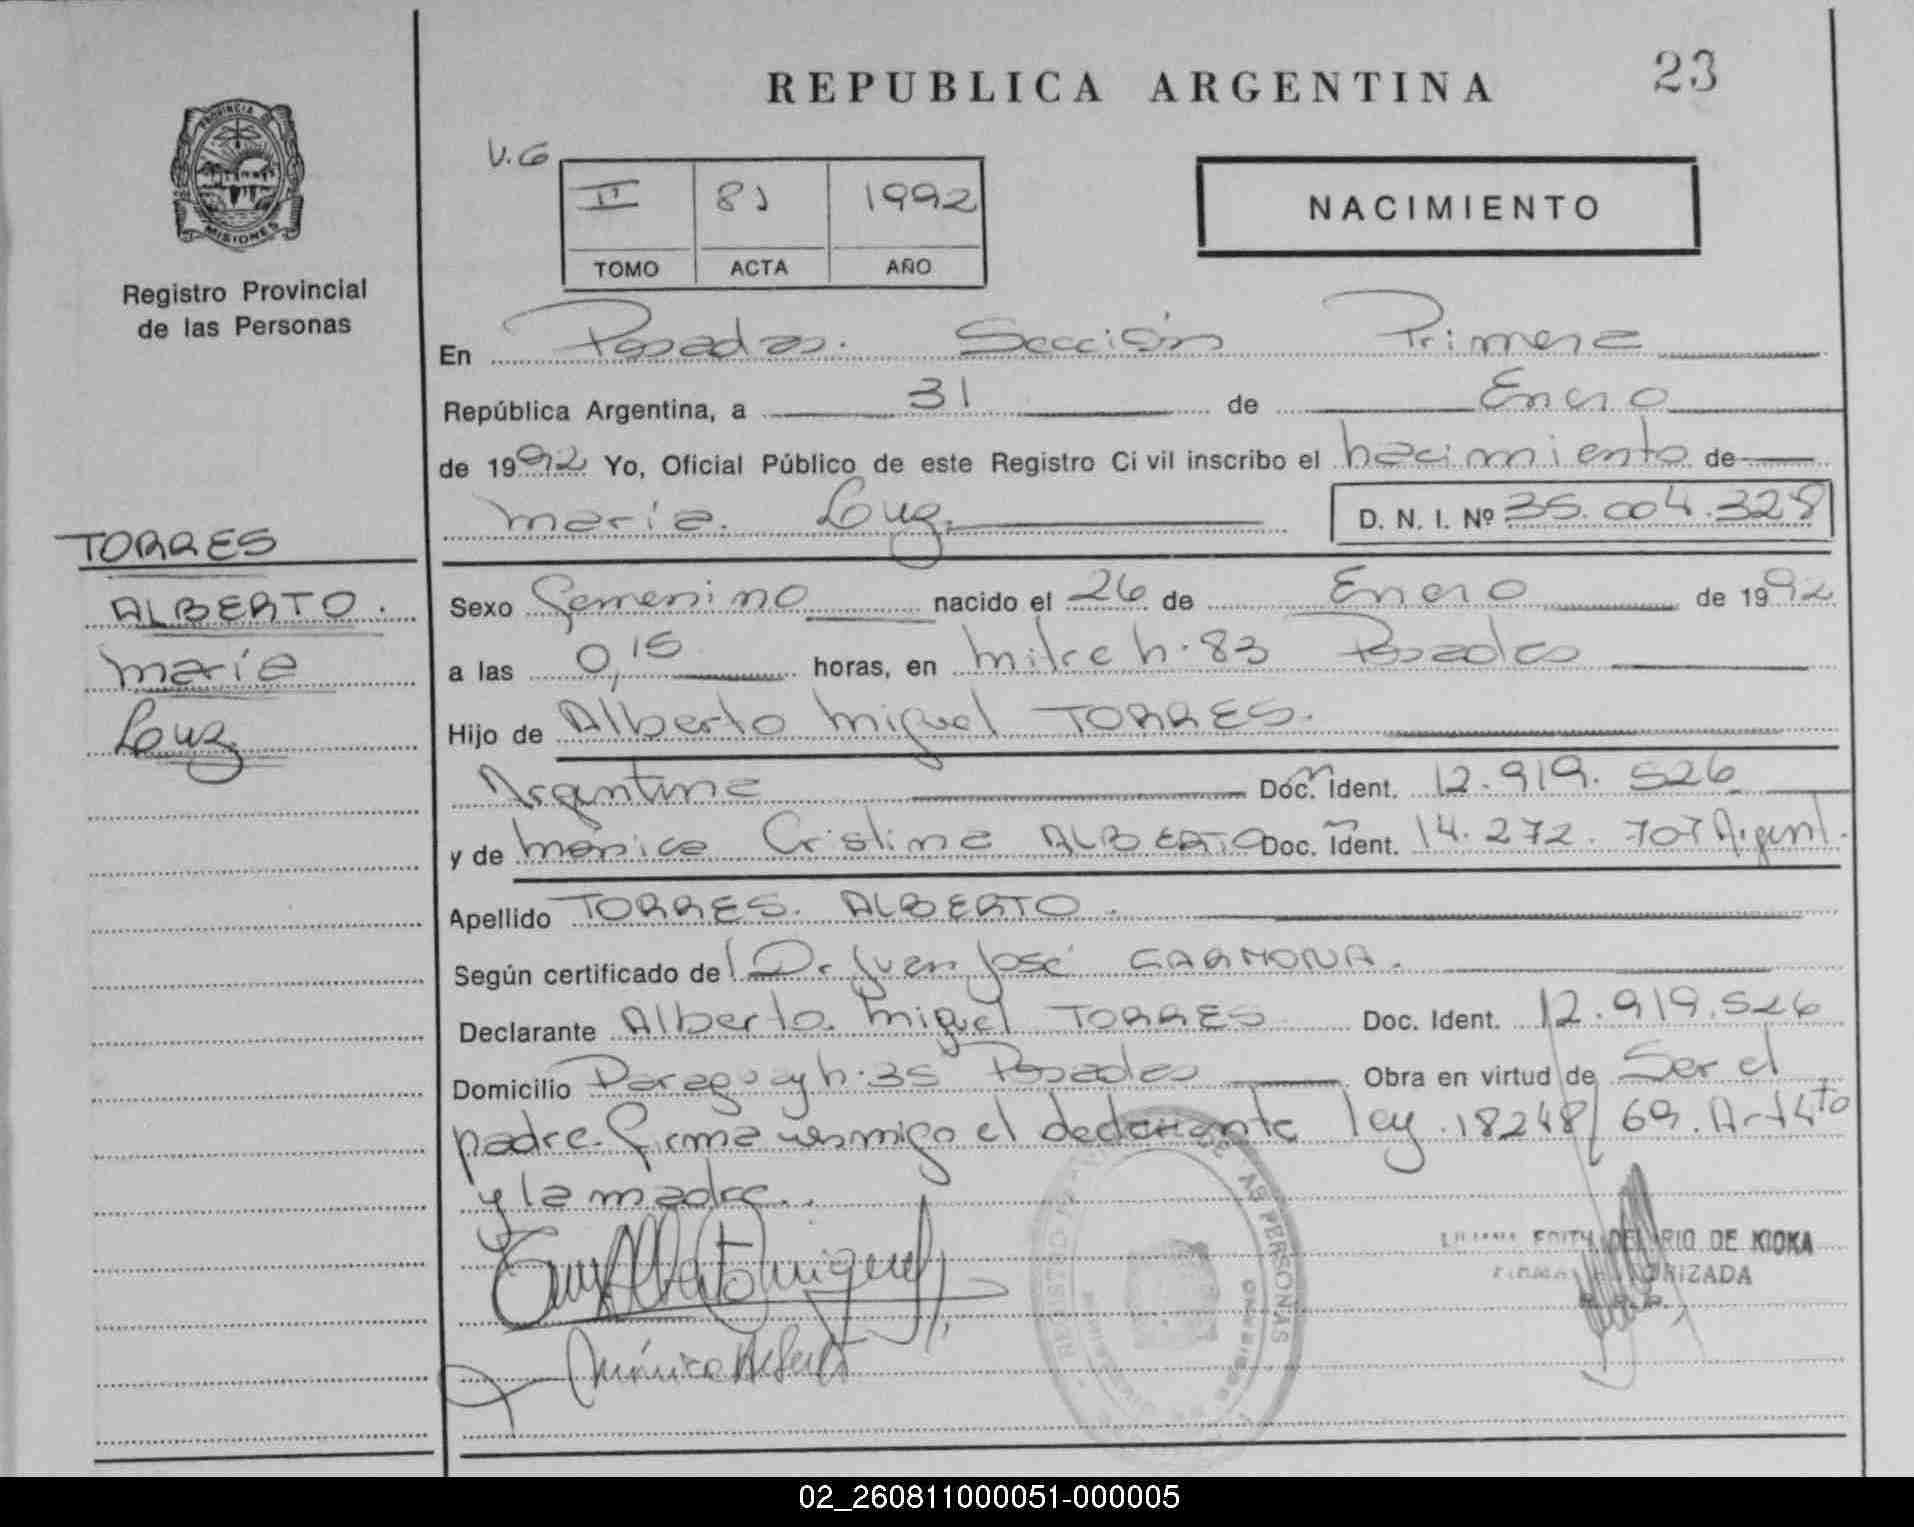 REPUBLICA ARGENTINA
23
PROVINCIA DE
MISIONES
Registro Provincial
de las Personas
V.G
II 81 1992
TOMO ACTA AÑO
NACIMIENTO
En Posadas. Sección Primera
República Argentina, a 31 de Enero
de 1992 Yo, Oficial Público de este Registro Ci vil inscribo el nacimiento de
María Luz. D. N. I. Nº 35.004.328
TORRES
ALBERTO.
María
Luz
Sexo femenino nacido el 26 de Enero de 1992
a las 0,15 horas, en Mitre n. 83 Posadas
Hijo de Alberto Miguel TORRES.
Argentina Doc. Ident. 12.919.526
y de Mónica Cristina ALBERTO Doc. Ident. 14.272.707 Argent.
Apellido TORRES. ALBERTO.
Según certificado de Dr Juan José CARMONA.
Declarante Alberto Miguel TORRES Doc. Ident. 12.919.526
Domicilio Paraguay n. 35 Posadas Obra en virtud de Ser el
padre. firma conmigo el declarante ley 18248/69. Art 4to
y la madre..
EDITH DEL RIO DE KIOKA
02_260811000051-000005